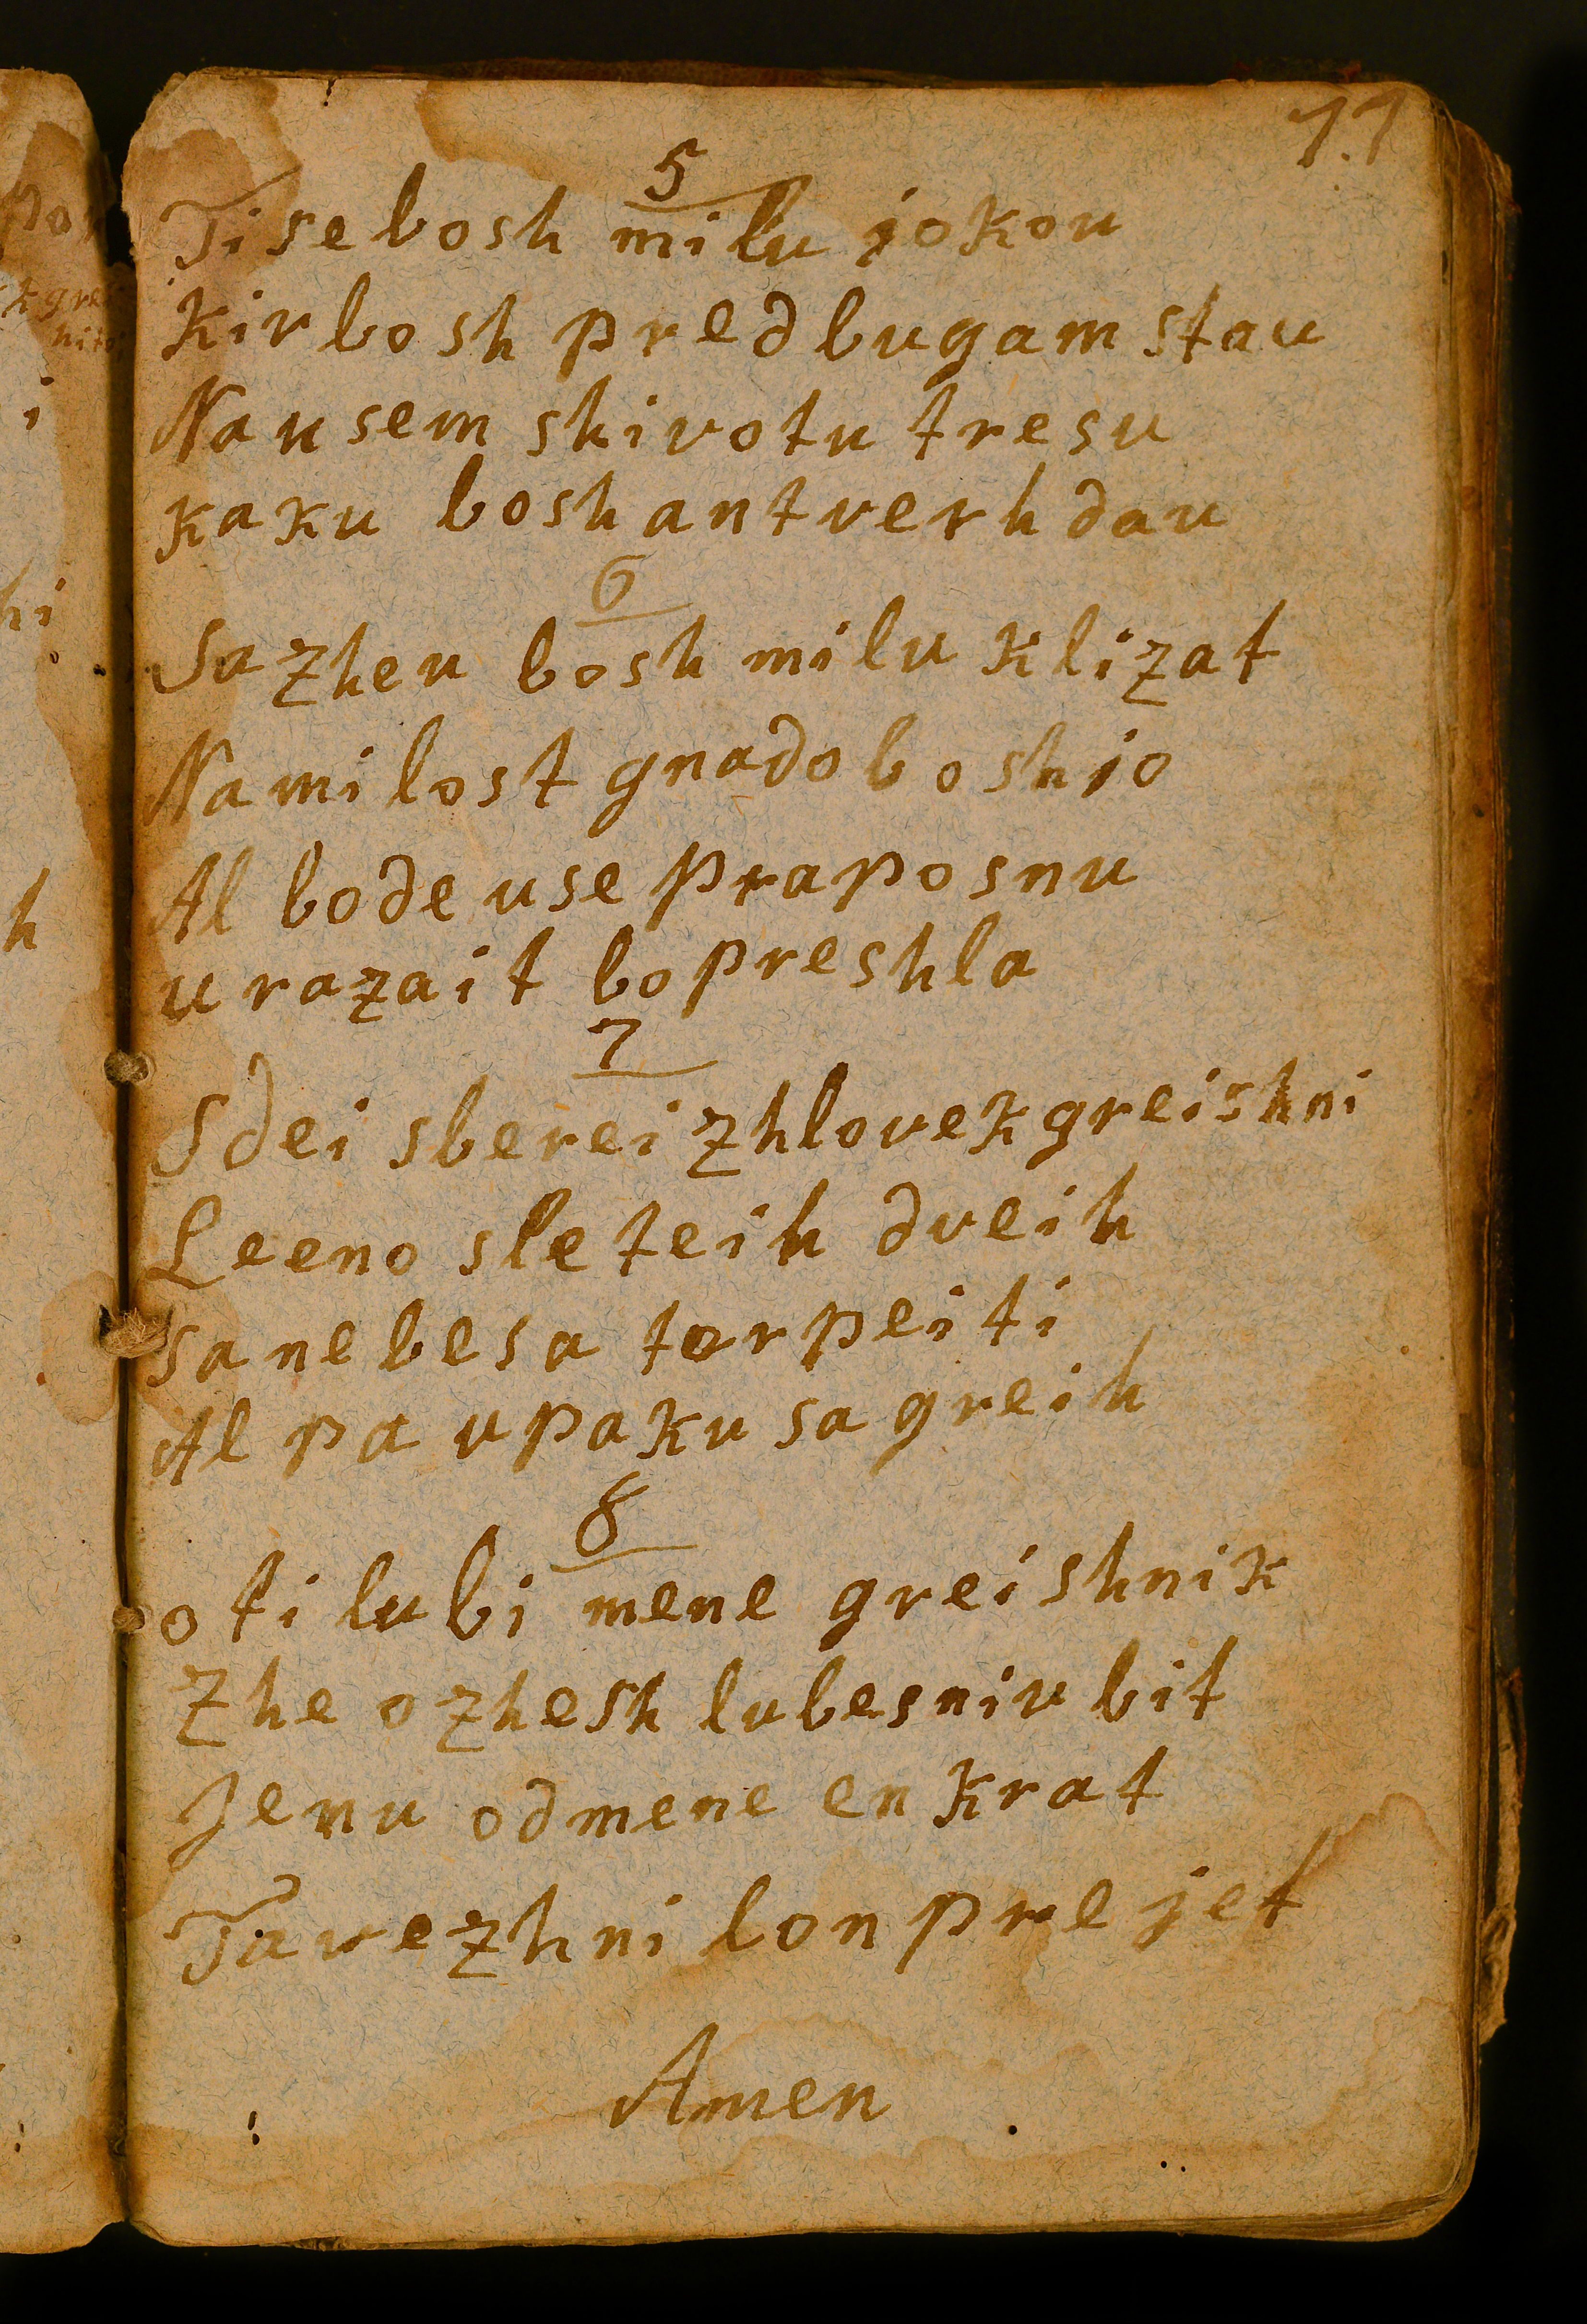 11
5
Ti se bosh milu jokou
Kir bosh pred bugam stau
Na usem shivotu tresu
kaku bosh antverh dau
6
Sazheu bosh milu klizat
Na milost gnado boshjo
Al bode use praposnu
u razait bo preshla
7
Sdei sberei zhlovek greishni
Leeno sleteih dveih
sa nebesa terpeiti
Al pa u paku sa greih
8
o ti lubi mene greishnik
Zhe ozhesh lubesniu bit
Jenu od mene enkrat
Ta vezhni lon prejet
Amen